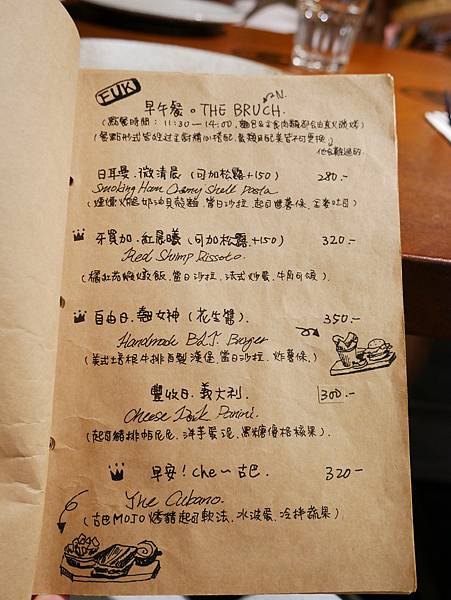 FUK
早午餐。THE BRUCH.
N.
(點餐時間: 11:30—14:00.
(餐點形式皆經過主廚精心搭配.餐類且配菜皆不可更換
他會難過的
日耳曼.微清晨 (可加松露+150) 280.-
Smoking Ham Creamy Shell Pasta
(煙燻火腿奶油貝殼麵.當日沙拉.起司雙薯條.全麥吐司)
牙買加.紅晨曦 (可加松露.+150) 320.-
Red Shrimp Rissoto.
(橘紅茄蝦燉飯.當日沙拉.法式炒蛋.牛角可頌)
自由日.翹女神 (花生醬) 350.-
Handmade B.L.T. Burger
(美式培根牛排自製漢堡.當日沙拉.炸薯條.)
豐收日.義大利 300.-
Cheese Pork Panini.
(起司豬排帕尼尼.洋芋蛋泥.黑糖優格梅果.)
早安!Che~古巴 320.-
The Cubano.
(古巴MOJO烤豬起司軟法.水波蛋.冷拌蔬果)